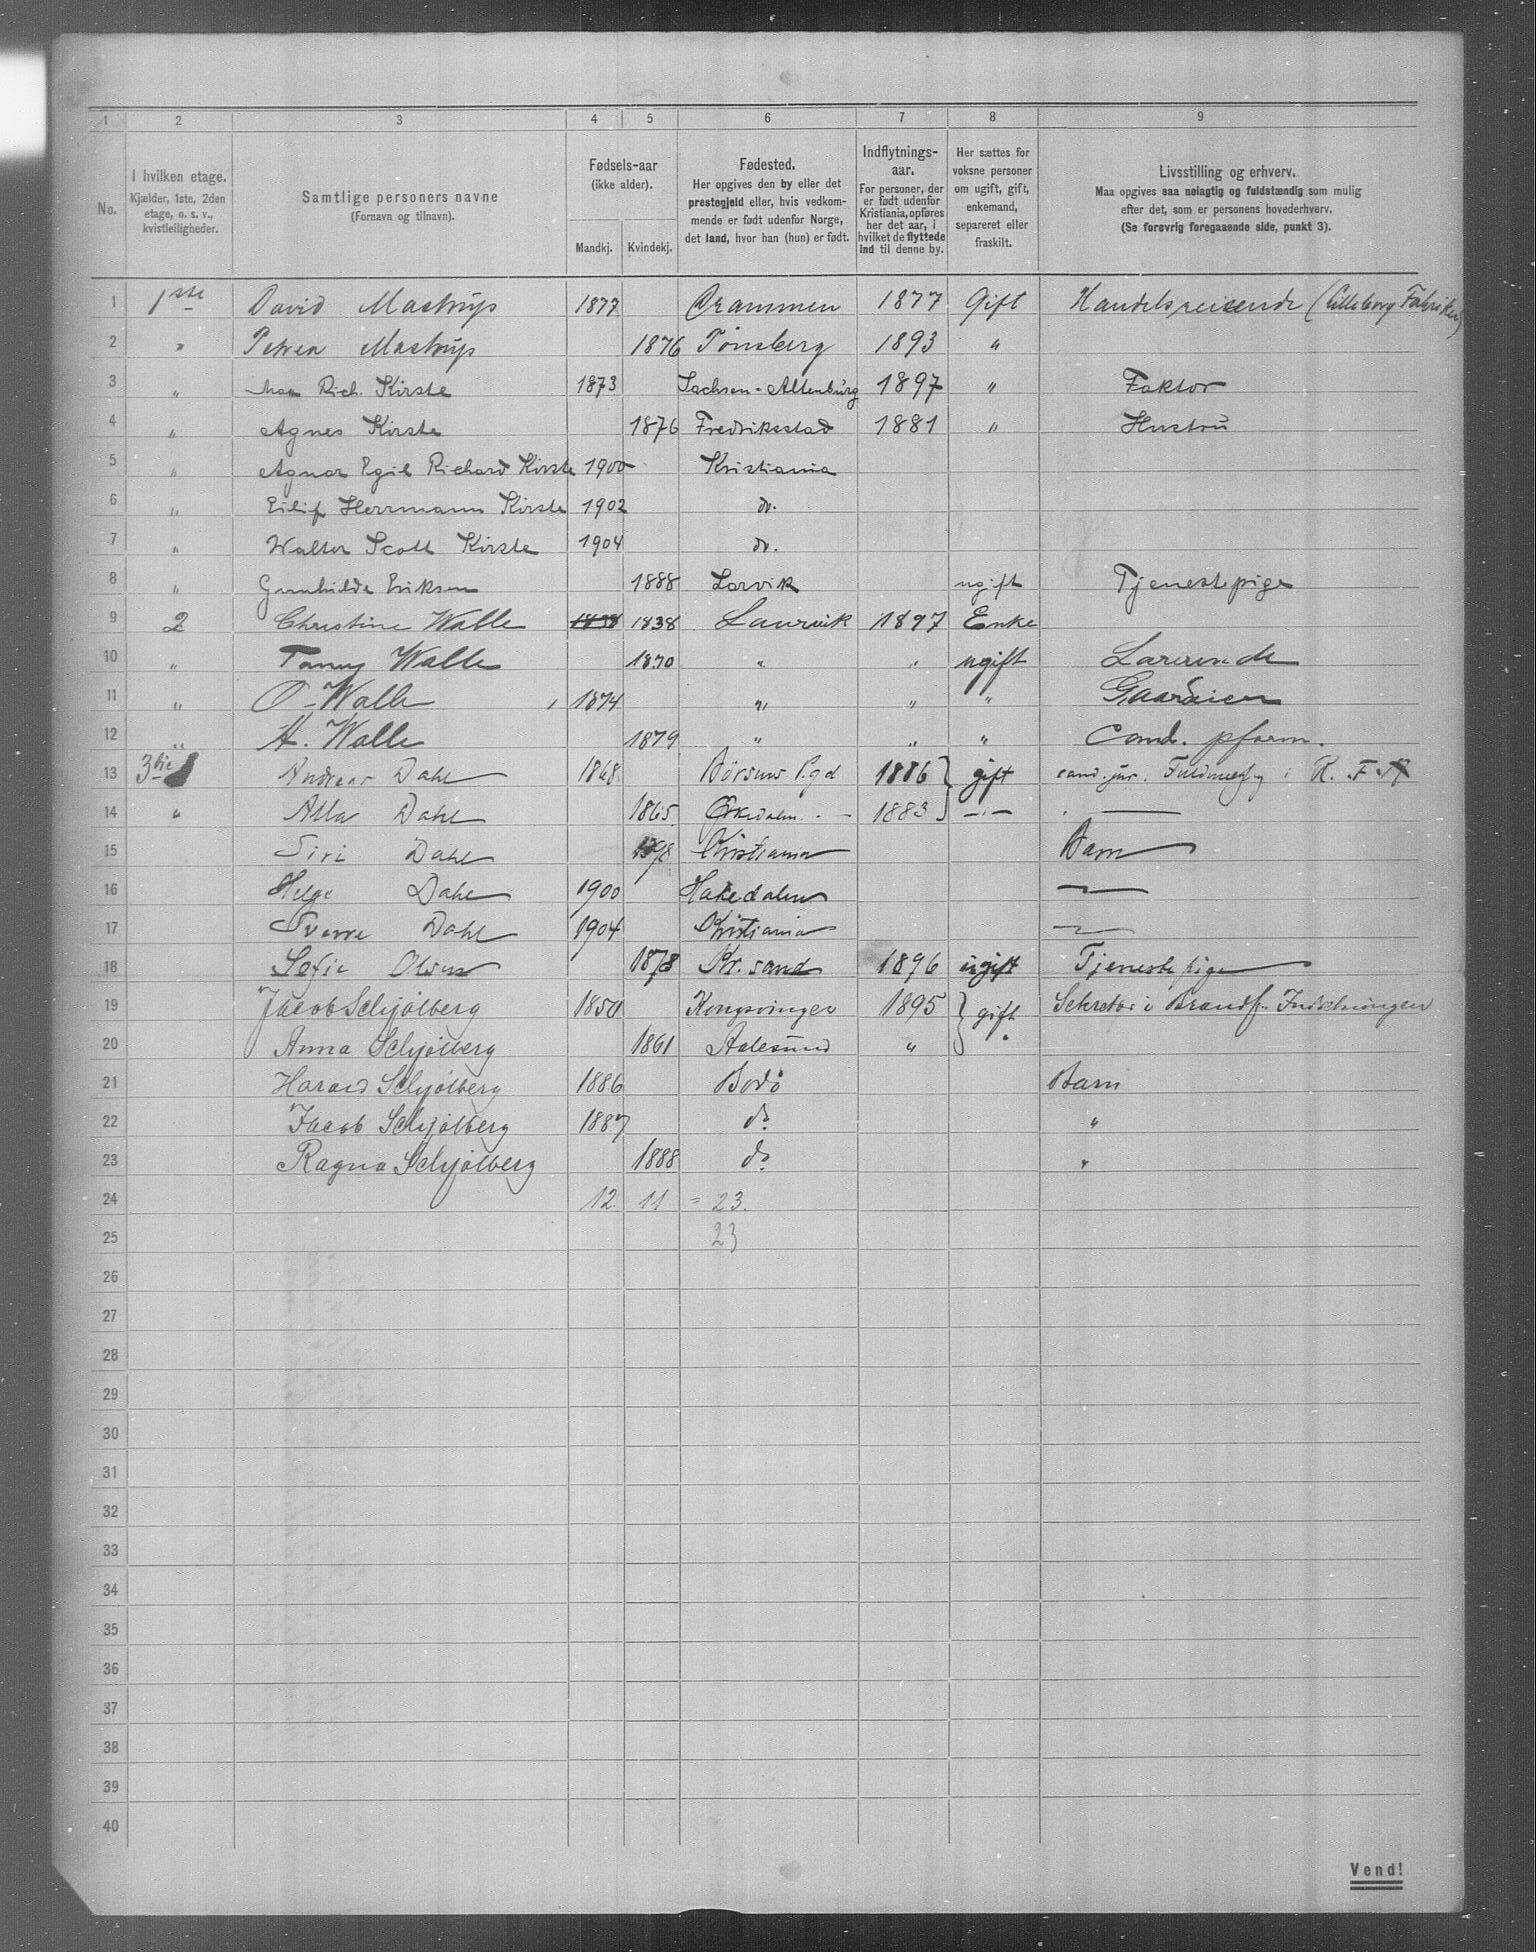 1 2 3 4 5 6 7 8 9
No.
I hvilken etage.
Kjælder, 1ste, 2den
etage, o. s. v.,
kvistleiligheder.
Samtlige personers navne
(Fornavn og tilnavn).
Fødsels-aar
(ikke alder).
Mandkj. Kvindekj.
Fødested.
Her opgives den by eller det
prestegjeld eller, hvis vedkom-
mende er født udenfor Norge,
det land, hvor han (hun) er født.
Indflytnings-
aar.
For personer, der
er født udenfor
Kristiania, opføres
her det aar, i
hvilket de flyttede
ind til denne by.
Her sættes for
voksne personer
om ugift, gift,
enkemand,
separeret eller
fraskilt.
Livsstilling og erhverv.
Maa opgives saa nøiagtig og fuldstændig som mulig
efter det, som er personens hovederhverv.
(Se forøvrig foregaaende side, punkt 3).
1 1ste David Mastrup 1877 Drammen 1877 Gift Handelsreisende (Lilleborg Fabriker)
2 " Petrea Mastrup 1876 Tønsberg 1893 "
3 " Max Rich. Kirste 1873 Sachsen-Altenburg 1897 " Faktor
4 " Agnes Kirste 1876 Fredriksstad 1881 " Hustru
5 " Agnar Egil Richard Kirste 1900 Kristiania
6 " Eilif Herrmann Kirste 1902 do.
7 " Walter Scott Kirste 1904 do.
8 " Gunhilde Eriksen 1888 Larvik ugift Tjenestepige
9 2 Christine Walle 1838 1838 Laurvik 1897 Enke
10 " Fanny Walle 1870 " " ugift Lærerinde
11 " O. Walle 1874 " " " Gaardeier
12 " A. Walle 1879 " " " Cand. pharm.
13 3die Andreas Dahl 1868 Børsens Pgd 1886 gift cand. jur. Fuldmægtig i R. F.
14 " Alla Dahl 1865 Ørkedalen 1883 —"—
15 Siri Dahl 1898 Christiania Barn
16 Helge Dahl 1900 Hakedalen
17 Sverre Dahl 1904 Christiania
18 Sofie Olsen 1878 Kr. sand 1896 ugift Tjenestepige
19 Jacob Schjølberg 1850 Kongsvinger 1895 gift Sekretær i Brandf. Indretningen
20 Anna Schjølberg 1861 Aalesund " "
21 Harald Schjølberg 1886 Bodø Barn
22 Jacob Schjølberg 1887 do "
23 Ragna Schjølberg 1888 do "
24 12. 11 = 23.
25 23
26
27
28
29
30
31
32
33
34
35
36
37
38
39
40
Vend!